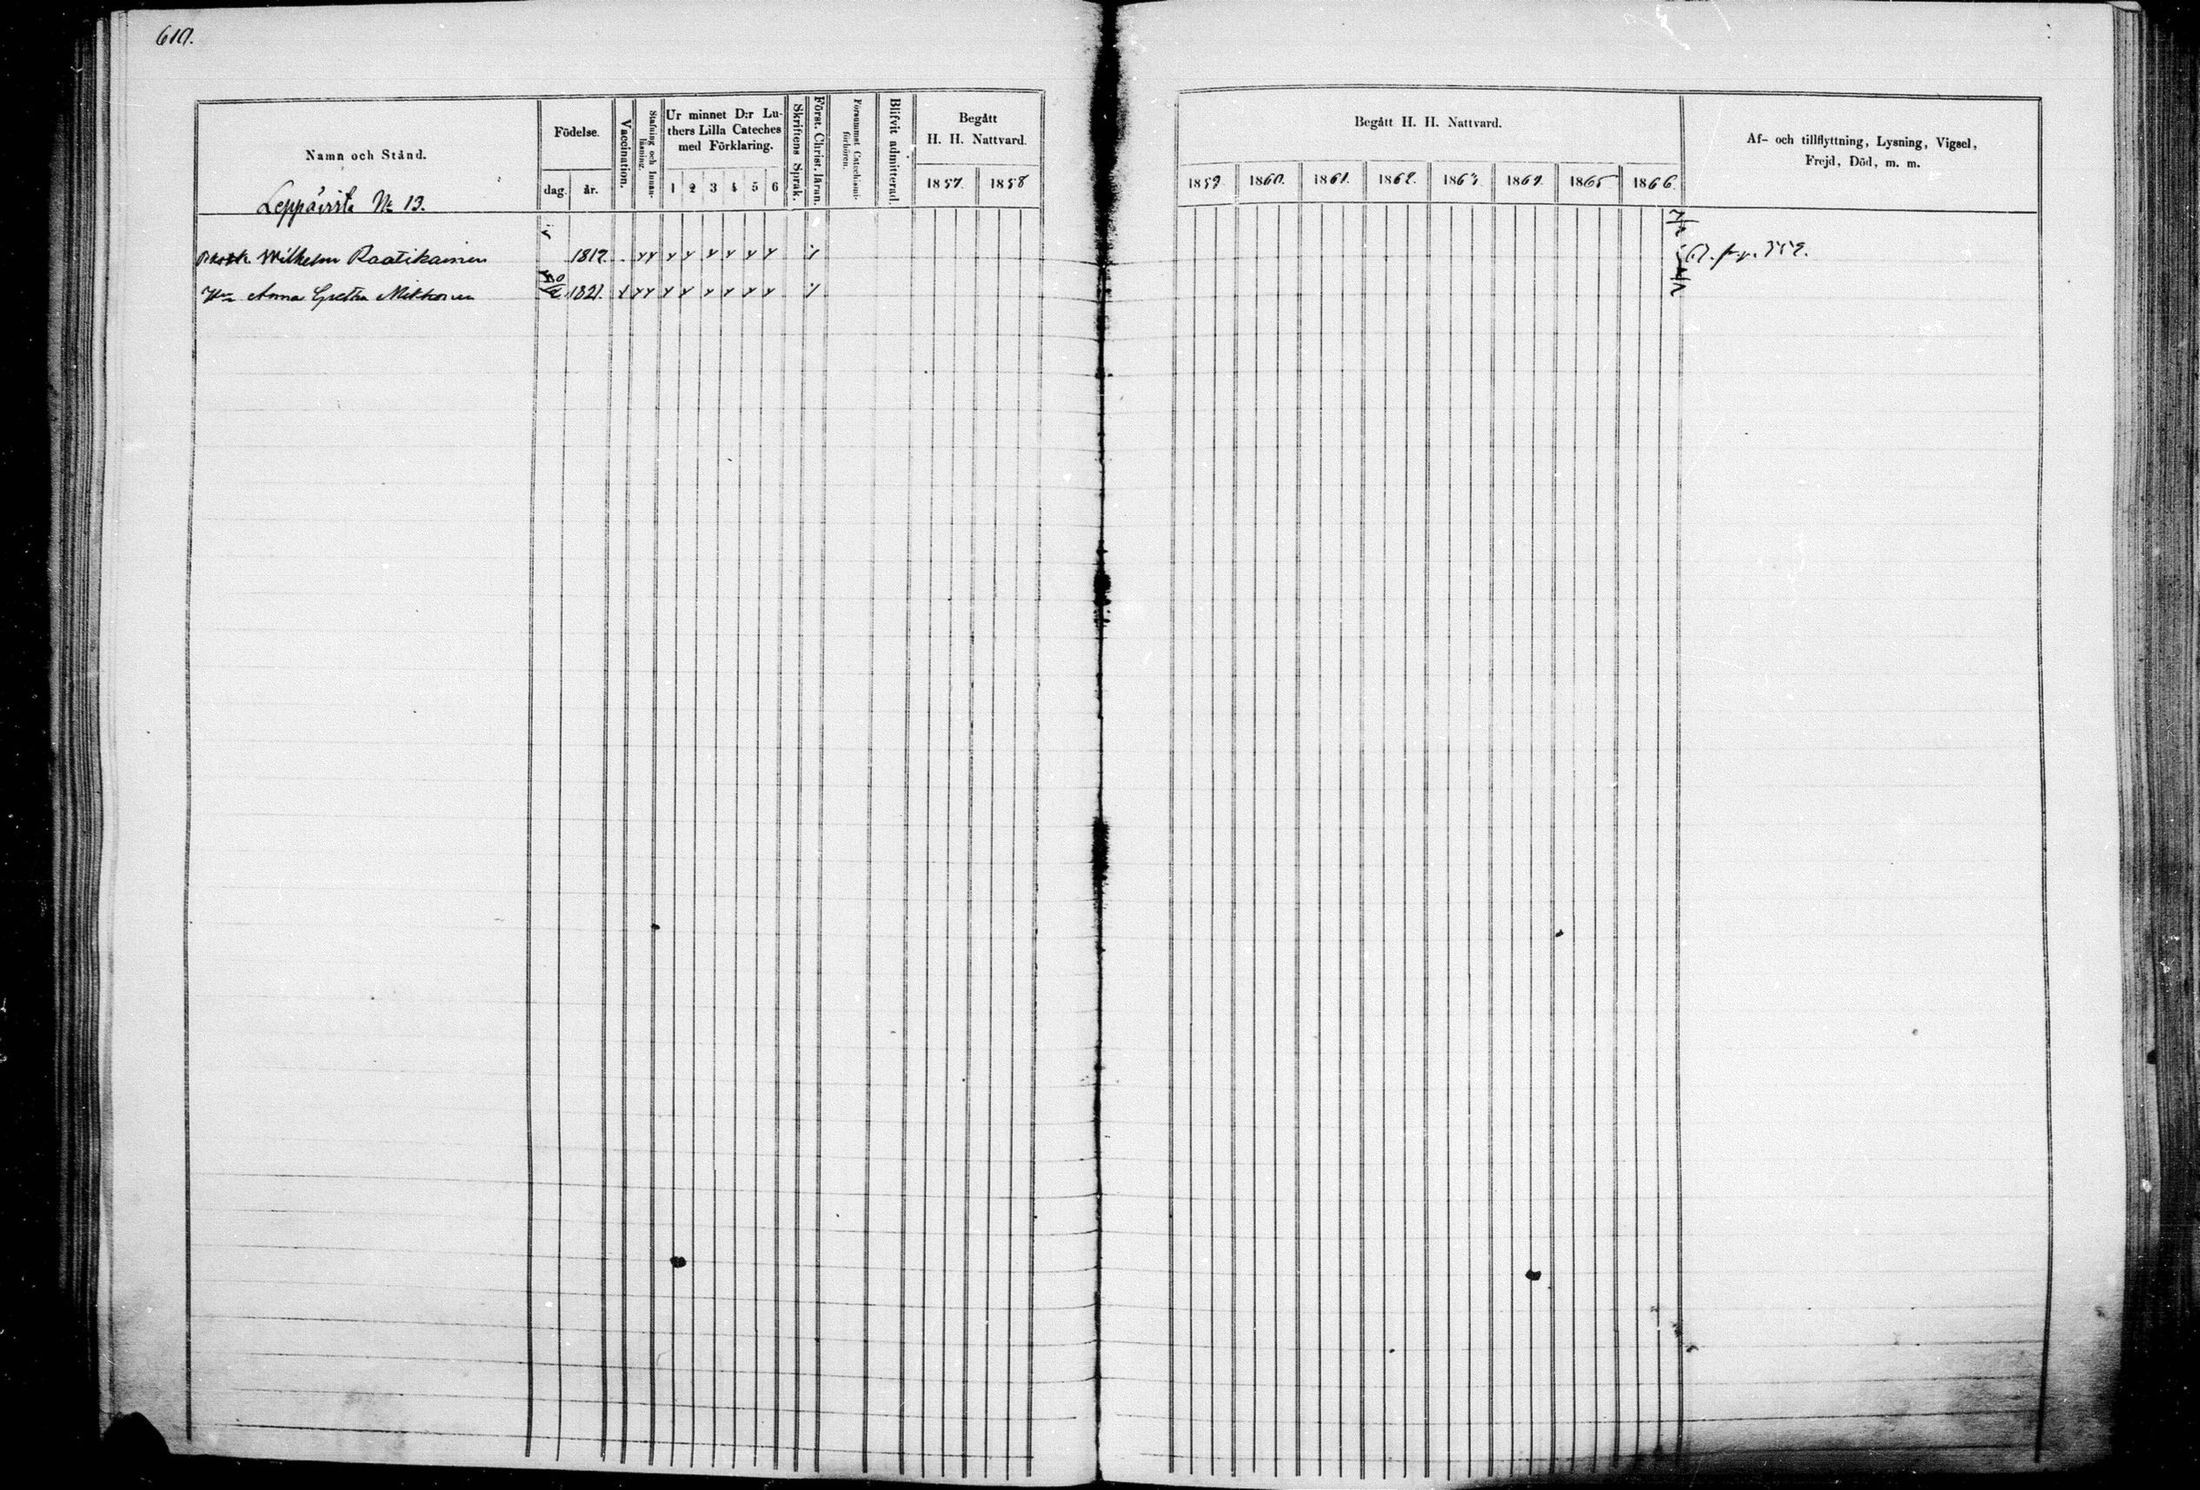 610.
Namn och Stånd.
Födelse.
dag. år.
Vaccination.
Stafning och Innanläsning.
Ur minnet D:r Luthers Lilla Cateches med Förklaring.
1 2 3 4 5 6
Skriftens Språk.
Först. Christ. läran.
Försummat Catechismiförhören.
Blifvit admitterad.
Begått
H. H. Nattvard.
1857. 1858
Begått H. H. Nattvard.
1859 1860. 1861. 1862. 1863. 1864. 1865 1866.
Af- och tillflyttning, Lysning, Vigsel,
Frejd, Död, m. m.
Leppävirta No 13.
Wilhelm Raatikainen 1819.
Anna Gretha Mikkonen 1821.